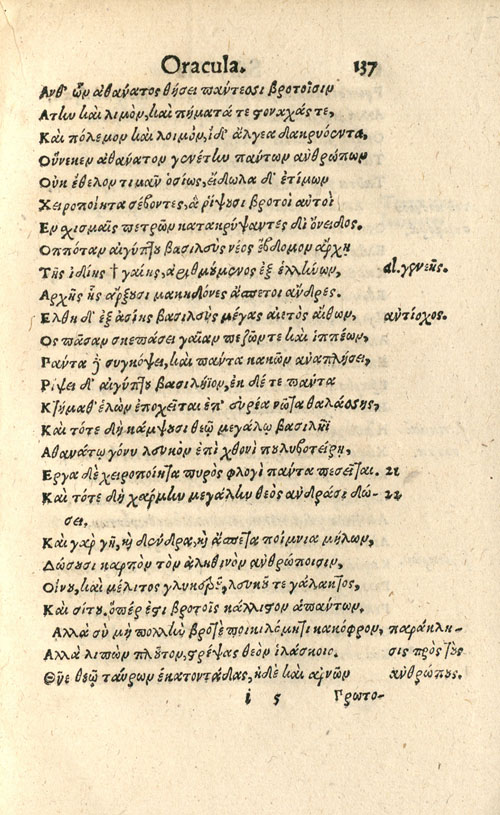 Oracula. 137
Ανθ' ὧν ἀθανατος θήσει παντεσι βροτοῖσιν
Ατίω καὶ λιμὸν, καὶ πήματά τε ϛοναχάς τε,
Καὶ πόλεμον καὶ λοιμὸν, ἰδ' ἄλγεα δακρυόεντα,
Οὕνεκεν ἀθανατον γενέτίω παντων ἀνθρώπων
Οὐκ ἔθελον τιμᾷν ὁσίως, εἴδωλα δ' ἐτίμων
Χειροποίητα σέβοντες, ἃ ῥίψυσι βροτοὶ αὐτοὶ
Εν χισμαῖς πετρῶν κατακρύψαντες δι' ὄνειδος.
Οππόταν αἰγύπτου βασιλεὺς νέος ἕβδομον ἄρχῃ
Τῆς ἰδίης † γαίης, ἀριθμούμενος ἐξ ἑλλήνων, al. γενεῆς.
Αρχῆς ἧς ἄρξουσι μακηδόνες ἄσπετοι ἄνδρες.
Ελθῃ δ' ἐξ ἀσίης βασιλεὺς μέγας αἰετὸς αἴθων, αντίοχος.
Ος πᾶσαν σκεπάσει γαῖαν πεζῶν τε καὶ ἱππέων,
Παντα δὲ συγκόψει, καὶ παντα κακῶν αναπλήσει,
Ρίψει δ' αἰγύπτου βασιλήϊον, ἐκ δέ τε παντα
Κτήμαθ' ἑλὼν ἐποχεῖται ἐπ' εὐρέα νῶτα θαλάσσης,
Καὶ τότε δὴ κάμψουσι θεῷ μεγάλῳ βασιλῆϊ
Αθανατῳ γόνυ λευκὸν ἐπὶ χθονὶ πουλυβοτείρῃ,
Εργα δὲ χειροποίητα πυρὸς φλογὶ παντα πεσεῖται. 21
Καὶ τότε δὴ χάρμίω μεγάλίω θεὸς ανδράσι δώ- 22
σει,
Καὶ γὰρ γῆ, καὶ δένδρα, καὶ ἄσπετα ποίμνια μήλων,
Δώσουσι καρπὸν τὸν ἀληθινὸν ανθρώποισιν,
Οἴνου, καὶ μέλιτος γλυκεροῦ, λευκοῦ τε γάλακτος,
Καὶ σίτου, ὅπέρ ἐϛι βροτοῖς κάλλιϛον ἁπαντων.
Αλλὰ σὺ μὴ πολλίω βροτὲ ποικιλόμητι κακόφρον, παράκλη-
Αλλὰ λιπὼν πλοῦτον, ϛρέψας θεὸν ἱλάσκοις. σις πρὸς τοὺς
Θῦε θεῷ ταύρων ἑκατοντάδας, ἠδὲ καὶ ἀρνῶν ανθρώπους.
i 5 Πρωτο-